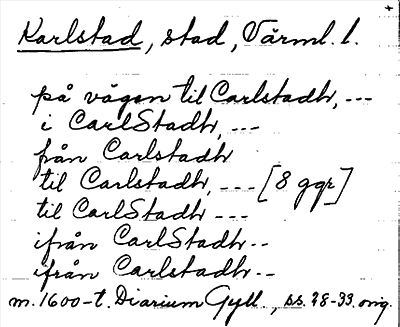 Karlstad, stad, Värml. l.
på vägen til Carlstadh, ---
i CarlStadh, ---
från Carlstadh
til Carlstadh, --- [8 ggr]
til CarlStadh ---
ifrån CarlStadh --
ifrån Carlstadh --
m. 1600-t. Diarium Gyll., ss. 28-33. orig.